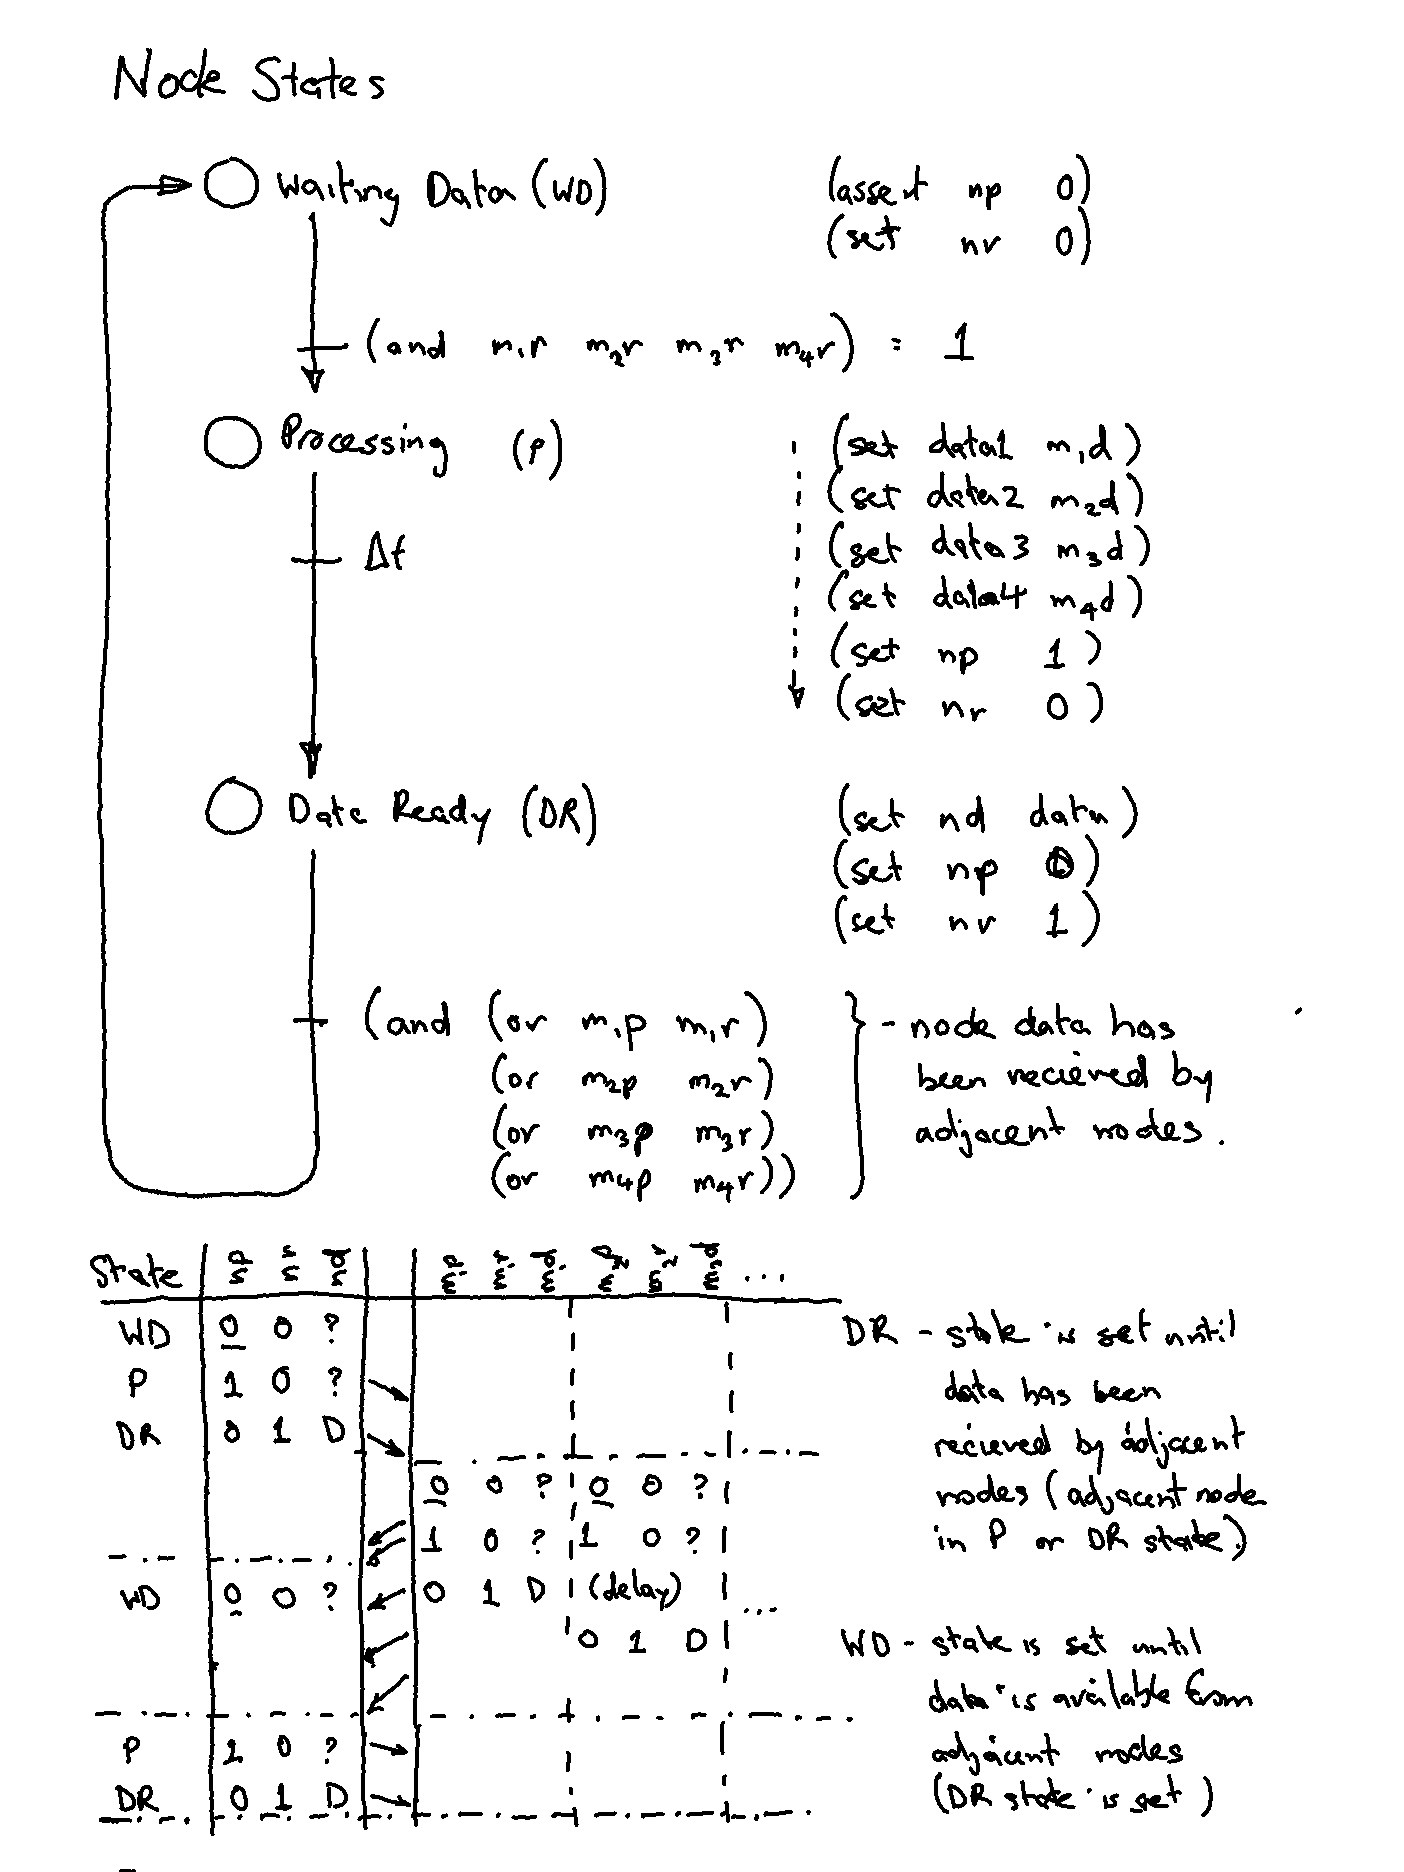 Node States
Waiting Data (WD) (assert np 0)
(set nr 0)
(and m₁r m₂r m₃r m₄r) = 1
Processing (P) (set data1 m₁d)
(set data2 m₂d)
Δt (set data3 m₃d)
(set data4 m₄d)
(set np 1)
(set nr 0)
Data Ready (DR) (set nd data)
(set np 0)
(set nr 1)
(and (or m₁p m₁r) } - node data has
(or m₂p m₂r) been recieved by
(or m₃p m₃r) adjacent nodes.
(or m₄p m₄r))
State np nr nd m₁p m₁r m₁d m₂p m₂r m₂d ...
WD 0 0 ?
P 1 0 ?
DR 0 1 D
0 0 ? 0 0 ?
1 0 ? 1 0 ?
WD 0 0 ? 0 1 D (delay) ...
0 1 D
P 1 0 ?
DR 0 1 D
DR - state is set until
data has been
recieved by adjacent
nodes (adjacent node
in P or DR state.)
WD - state is set until
data is available from
adjacent nodes
(DR state is set)